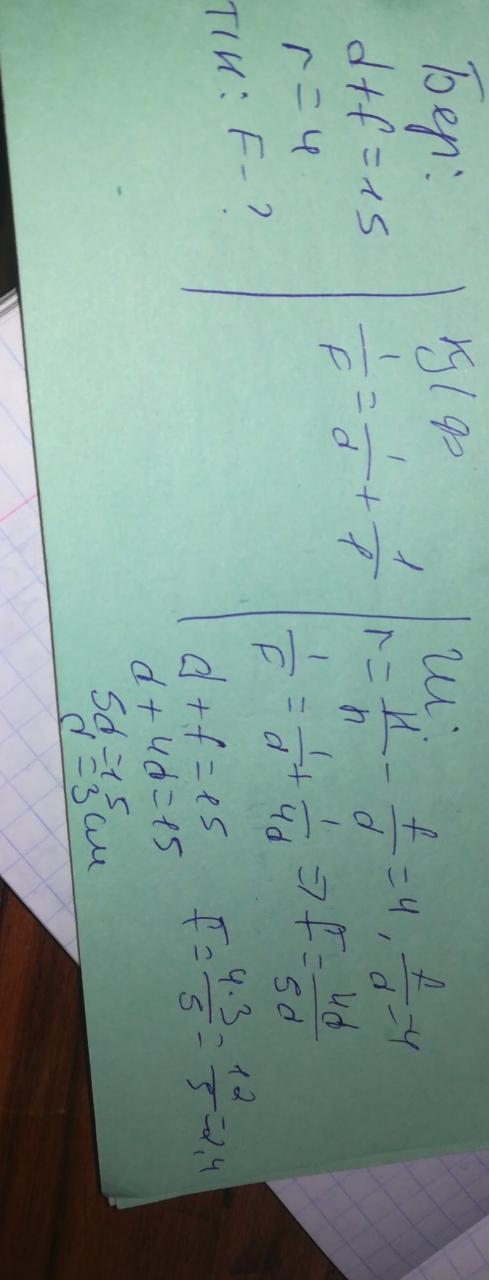 Бер:
d + f = 15
r = 4
т/к: F - ?
Қ/ф
1/F = 1/d + 1/f
Ш:
r = H/h = f/d = 4, f/d = 4
1/F = 1/d + 1/4d => F = 4d/5d
d + f = 15
d + 4d = 15
5d = 15
d = 3 см
F = 4·3/5 = 12/5 = 2,4